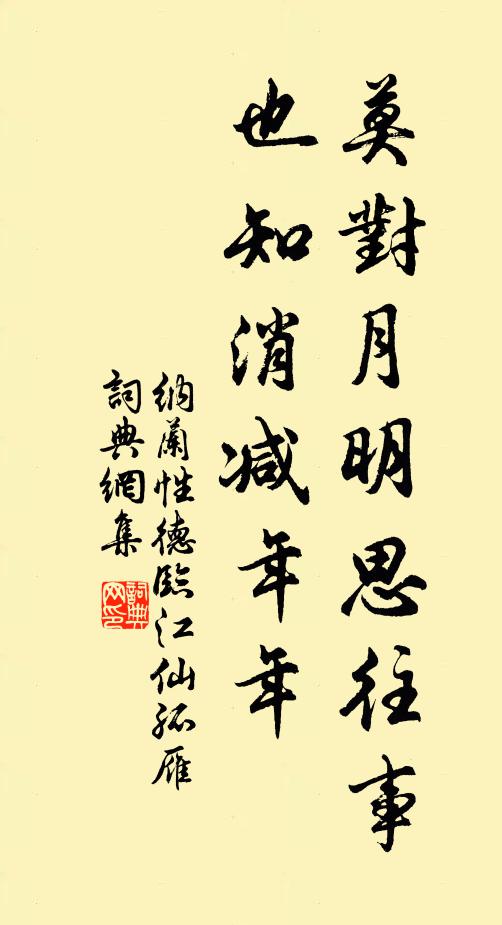 莫對月明思往事
也知消減年年
納蘭性德臨江仙孤雁
詞典網集
詞典网印